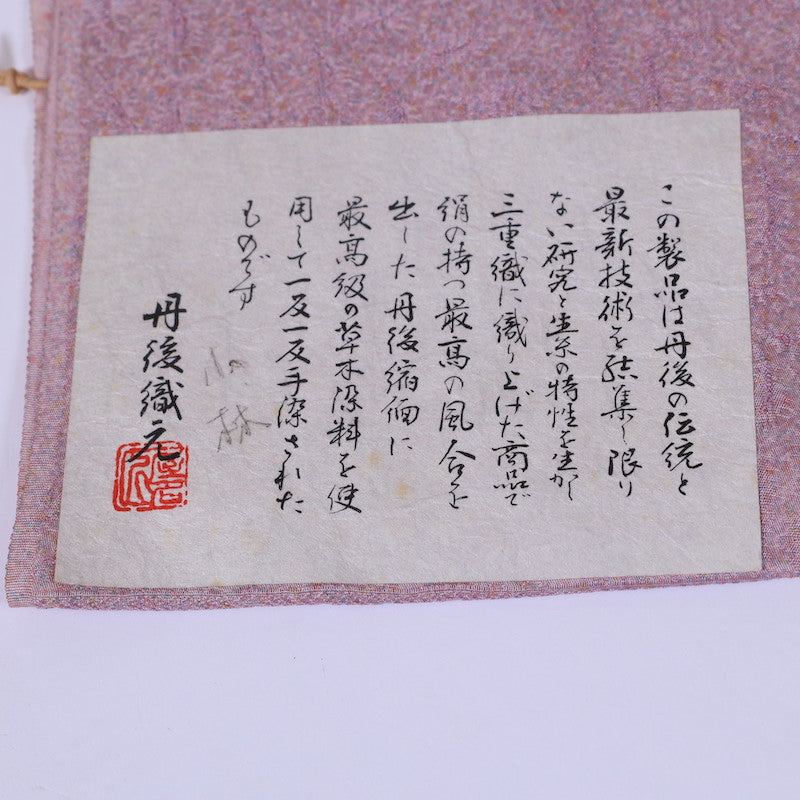 この製品は丹後の伝統と
最新技術を結集し限り
ない研究と生糸の特性を生かし
三重織に織り上げた商品で
絹の持つ最高の風合を
出した丹後縮緬に
最高級の草木染料を使
用して一反一反手染された
ものです
小林
丹後織元